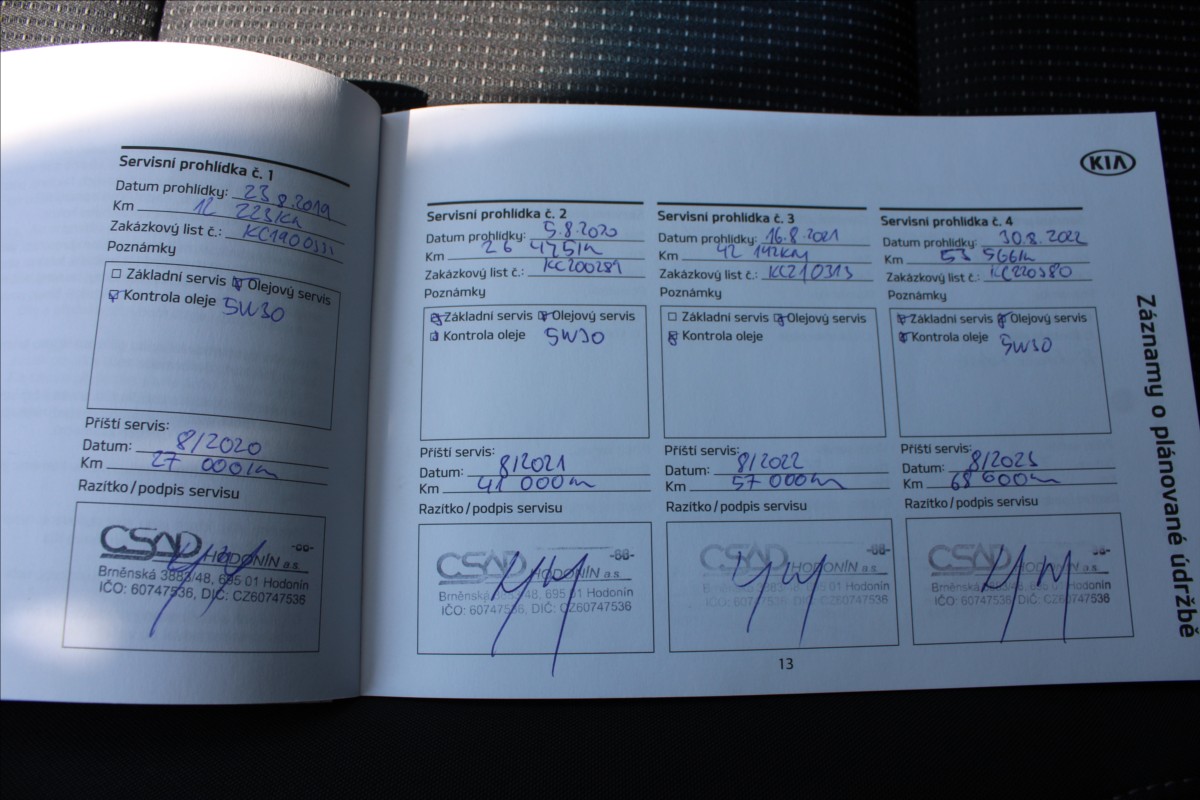 Servisní prohlídka č. 1
Datum prohlídky: 23.8.2019
Km 12 223km
Zakázkový list č.:
Poznámky
Základní servis Olejový servis
Kontrola oleje 5W30
Příští servis:
Datum: 8/2020
Km 27 000km
Razítko/podpis servisu
CSAD HODONÍN a.s. -88-
Brněnská 3883/48, 695 01 Hodonín
IČO: 60747536, DIČ: CZ60747536
KIA
Servisní prohlídka č. 2
Datum prohlídky: 5.8.2020
Km 26 475km
Zakázkový list č.: KC200281
Poznámky
Základní servis Olejový servis
Kontrola oleje 5W30
Příští servis:
Datum: 8/2021
Km 41 000km
Razítko/podpis servisu
CSAD HODONÍN a.s. -88-
Brněnská 3883/48, 695 01 Hodonín
IČO: 60747536, DIČ: CZ60747536
Servisní prohlídka č. 3
Datum prohlídky: 16.8.2021
Km 42 142km
Zakázkový list č.: KC210313
Poznámky
Základní servis Olejový servis
Kontrola oleje
Příští servis:
Datum: 8/2022
Km 57 000km
Razítko/podpis servisu
CSAD HODONÍN a.s. -88-
Brněnská 3883/48, 695 01 Hodonín
IČO: 60747536, DIČ: CZ60747536
Servisní prohlídka č. 4
Datum prohlídky: 30.8.2022
Km 53 566km
Zakázkový list č.: KC220380
Poznámky
Základní servis Olejový servis
Kontrola oleje 5W30
Příští servis:
Datum: 8/2023
Km 68 600km
Razítko/podpis servisu
CSAD HODONÍN a.s.
Brněnská 3883/48, 695 01 Hodonín
IČO: 60747536, DIČ: CZ60747536
13
Záznamy o plánované údržbě